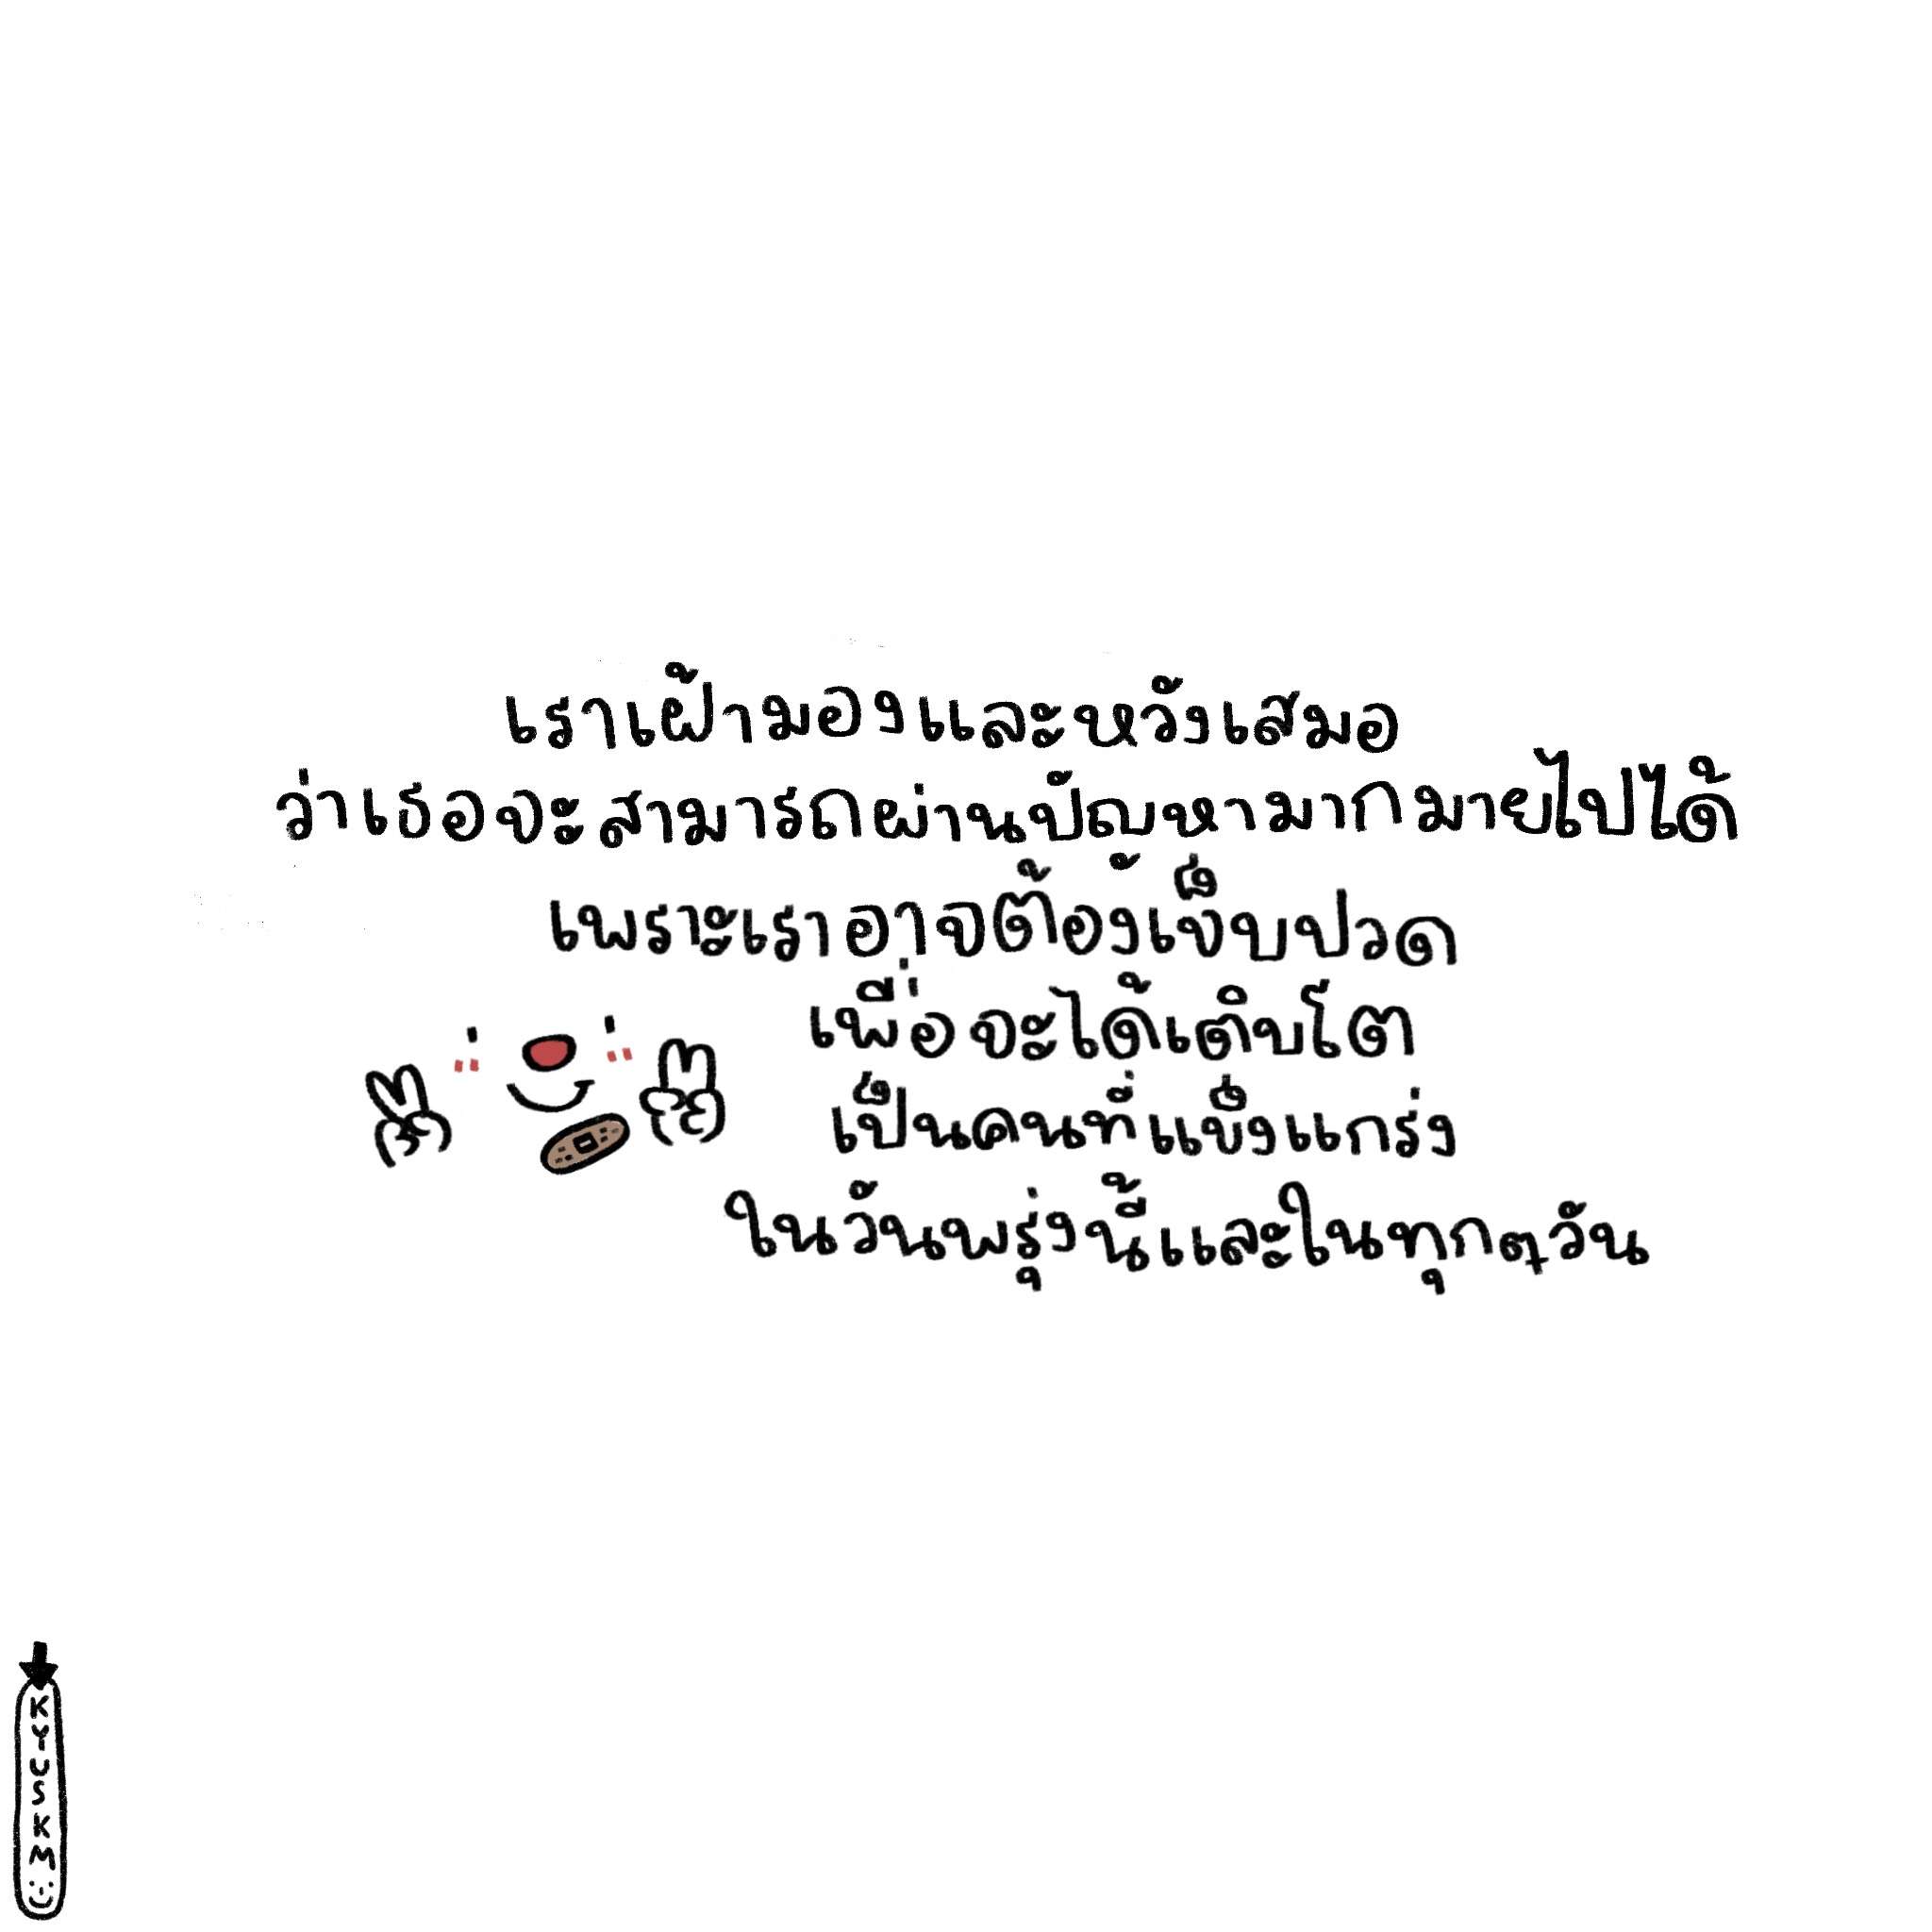 เราเฝ้ามองและหวังเสมอ
ว่าเธอจะสามารถผ่านปัญหามากมายไปได้
เพราะเราอาจต้องเจ็บปวด
เพื่อจะได้เติบโต
เป็นคนที่แข็งแกร่ง
ในวันพรุ่งนี้และในทุกๆวัน
KYUSKM